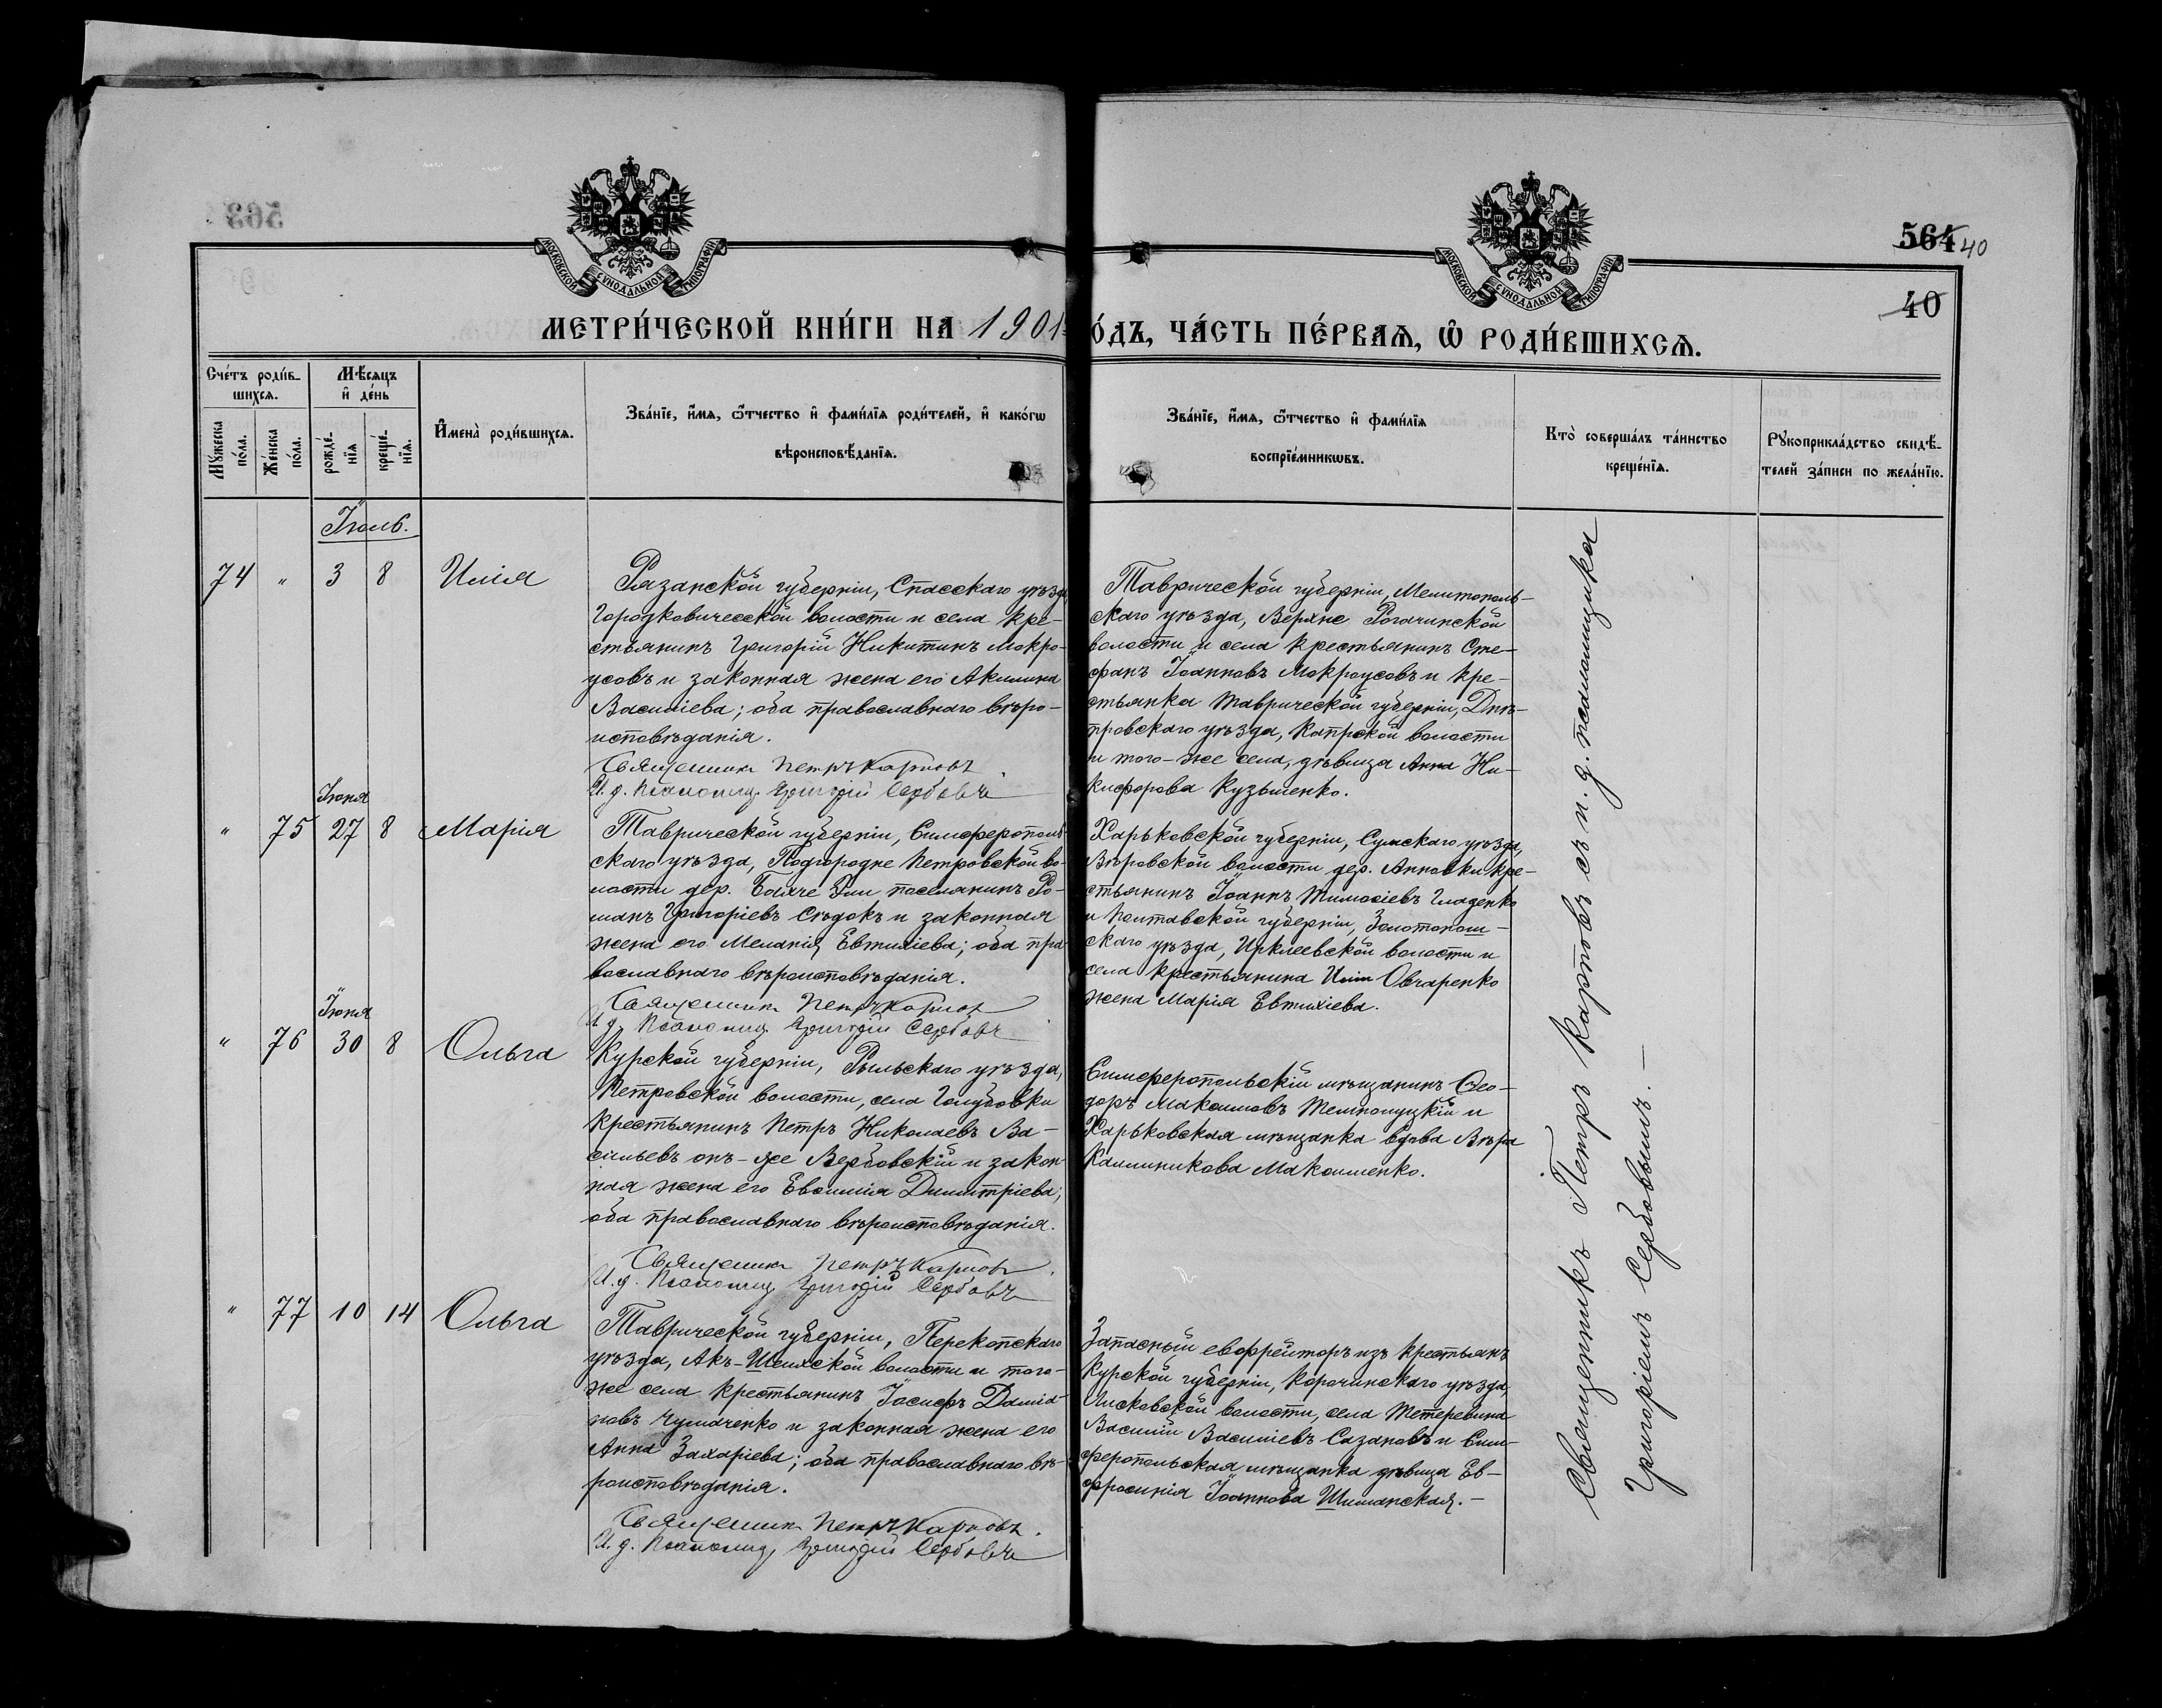 564 40
40
МОСКОВСКОЙ СѴНОДАЛЬНОЙ ТИПОГРАФІИ
МОСКОВСКОЙ СѴНОДАЛЬНОЙ ТИПОГРАФІИ
МЕТРИ́ЧЕСКОЙ КНИ́ГИ НА 1901 О́ДЪ, ЧА́СТЬ ПЕ́РВАѦ, Ѡ РОДИ́ВШИХСѦ.
Сче́тъ роди́в-
шихсѧ.
Мꙋ́жеска по́ла.
Же́нска по́ла.
Мѣ́сѧцъ
и҆ де́нь
рожде́-
нїѧ
креще́-
нїѧ.
И҆мена̀ роди́вшихсѧ.
Зва́нїе, и҆́мѧ, ѻ҆́тчество и҆ фами́лїѧ роди́телей, и҆ како́гѡ
вѣроисповѣ́данїѧ.
Зва́нїе, и҆́мѧ, ѻ҆́тчество и҆ фами́лїѧ
воспрїе́мникѡвъ.
Кто̀ соверша́лъ та́инство
креще́нїѧ.
Рꙋкоприкла́дство свидѣ́-
телей за́писи по жела́нїю.
Іюль.
74 " 3 8 Илія
Рязанской губерніи, Спасскаго уѣзда
Городковической волости и села кре-
стьянинъ Григорій Никитинъ Мокро-
усовъ и законная жена его Акилина
Василіева; оба православнаго вѣро-
исповѣданія.
Священникъ Петръ Карповъ.
И. д. Псаломщ. Григорій Сербовъ
Таврической губерніи, Мелитополь-
скаго уѣзда, Верхне Рогачинской
волости и села крестьянинъ Сте-
фанъ Іоанновъ Мокроусовъ и кре-
стьянка Таврической губерніи, Днѣ-
провскаго уѣзда, Каирской волости
и того-же села, дѣвица Анна Ни-
кифорова Кузьменко.
Іюня
" 75 27 8 Марія
Таврической губерніи, Симферополь-
скаго уѣзда, Подгородне Петровской во-
лости дер. поселянинъ Ро-
манъ Григоріевъ Сѣдокъ и законная
жена его Меланія Евтихіева; оба пра-
вославнаго вѣроисповѣданія.
Священникъ Петръ Карповъ
И. д. Псаломщ. Григорій Сербовъ
Харьковской губерніи, Сумскаго уѣзда,
Вѣровской волости дер. Анновки кре-
стьянинъ Іоаннъ Тимоѳіевъ Гладенко
и Полтавской губерніи, Золотонош-
скаго уѣзда, Ирклеевской волости и
села крестьянина Иліи Овчаренко
жена Марія Евтихіева.
Іюня
" 76 30 8 Ольга
Курской губерніи, Рыльскаго уѣзда,
Петровской волости, села Голубовки
крестьянинъ Петръ Николаевъ Ва-
сильевъ онъ-же Вербовскій и закон-
ная жена его Евѳимія Димитріева;
оба православнаго вѣроисповѣданія.
Священникъ Петръ Карповъ.
И. д. Псаломщ. Григорій Сербовъ
Симферопольскій мѣщанинъ Ѳео-
доръ Максимовъ и
Харьковская мѣщанка вдова Вѣра
Каллиникова Максименко.
" 77 10 14 Ольга
Таврической губерніи, Перекопскаго
уѣзда, Акъ-Шеихской волости и того-
же села крестьянинъ Іосифъ Даміа-
новъ Чумаченко и законная жена его
Анна Захаріева; оба православнаго вѣ-
роисповѣданія.
Священникъ Петръ Карповъ.
И. д. Псаломщ. Григорій Сербовъ
Запасный ефрейторъ изъ крестьянъ
Курской губерніи, Корочинскаго уѣзда,
волости, села Тетеревина
Василій Василіевъ Сазановъ и Сим-
феропольская мѣщанка дѣвица Ев-
фросинія Іоаннова Шиманская.-
Священникъ Петръ Карповъ съ и. д. псаломщика
Григоріемъ Сербовымъ.-